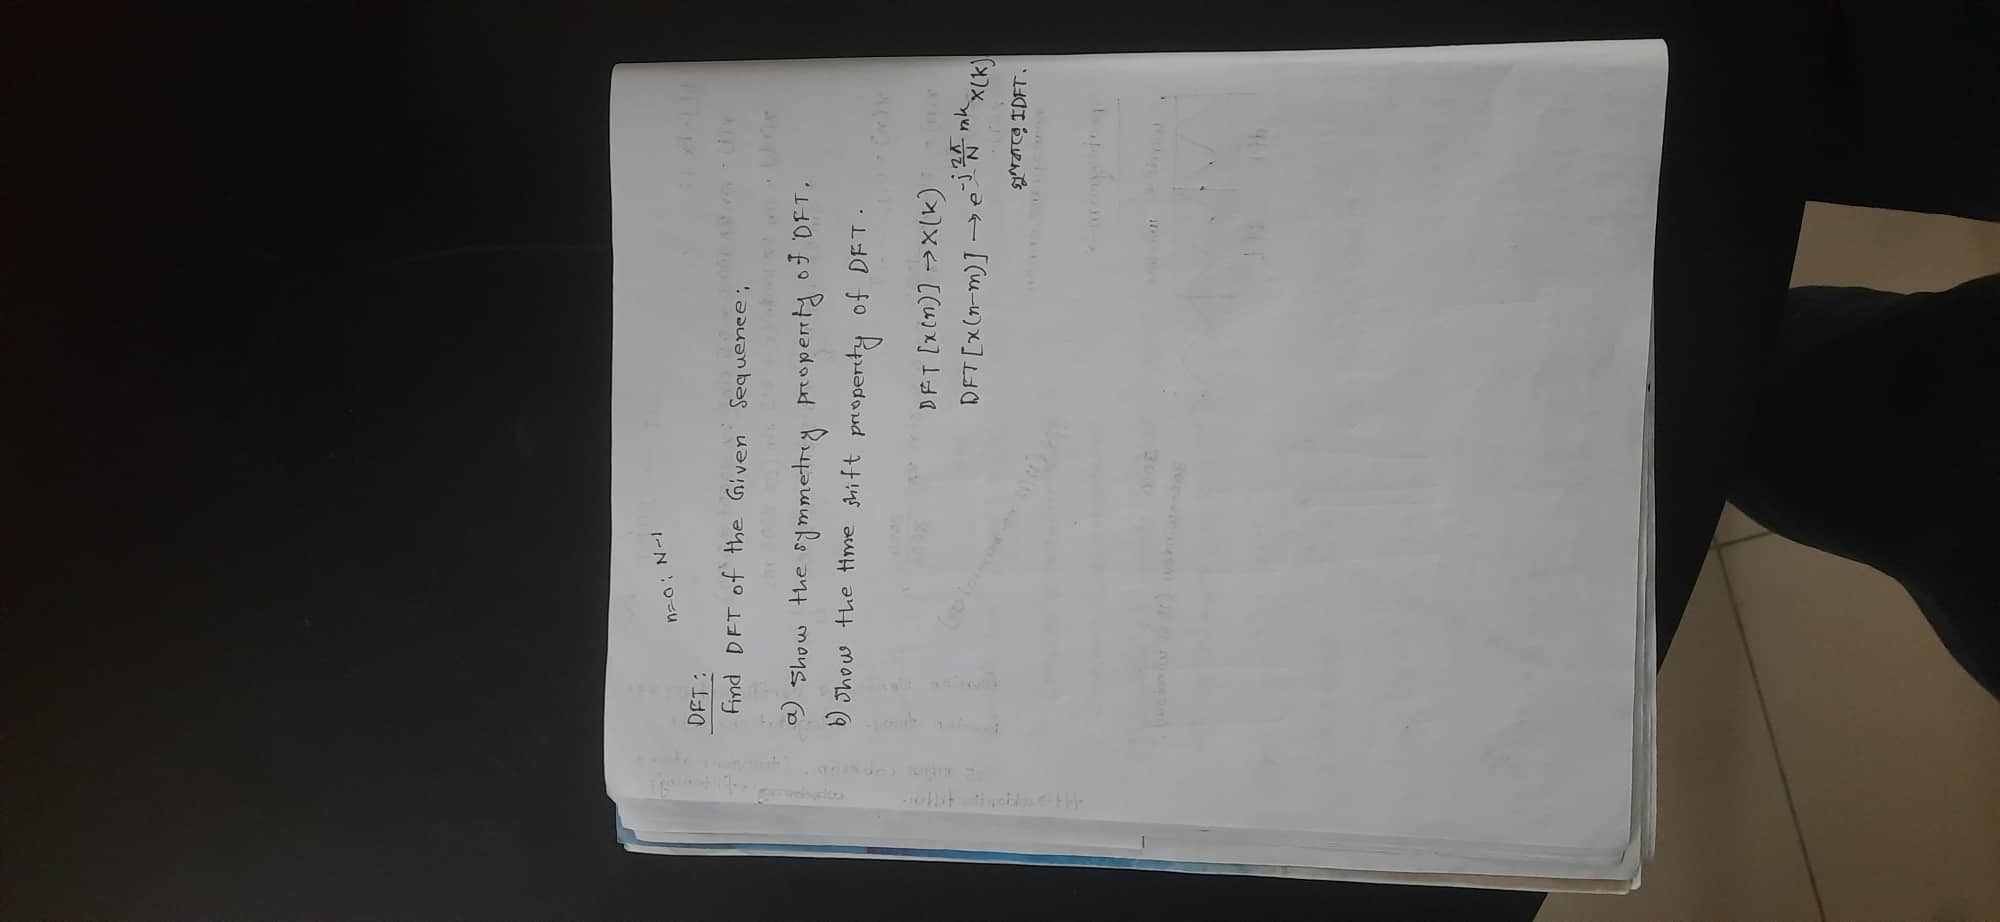 n=0:N-1
DFT:
Find DFT of the Given Sequence;
a) Show the symmetry property of DFT.
b) Show the time shift property of DFT.
DFT [x(n)] → X(k)
DFT [x(n-m)] → e^-j 2π/N mk X(k)
IDFT.